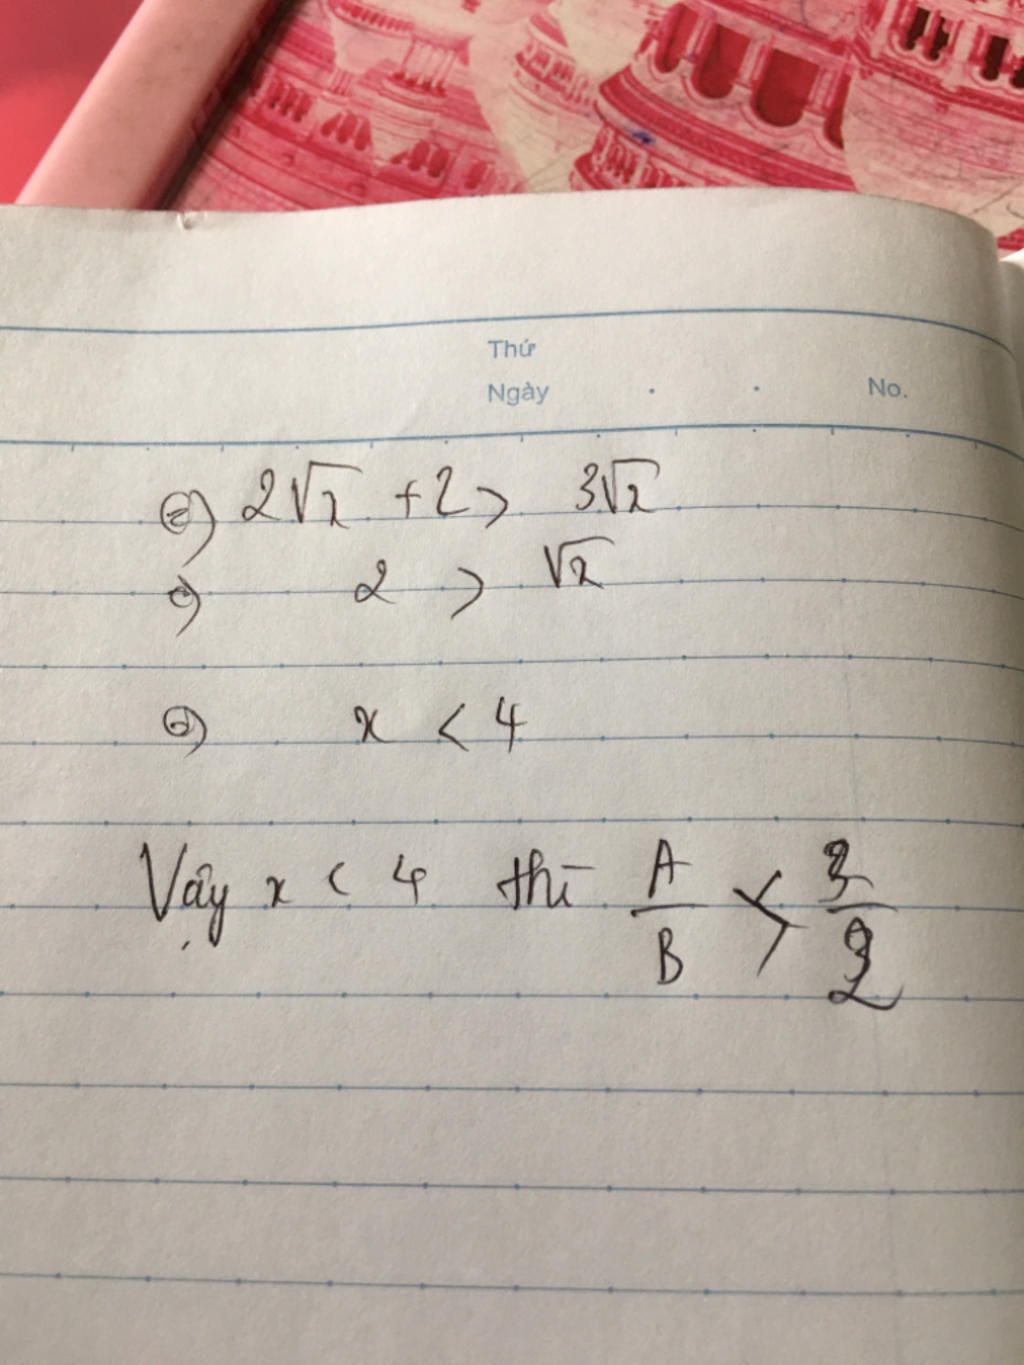 Thứ
Ngày . . No.
⇔ 2√x + 2 > 3√x
⇔ 2 > √x
⇔ x < 4
Vậy x < 4 thì A/B > 3/2